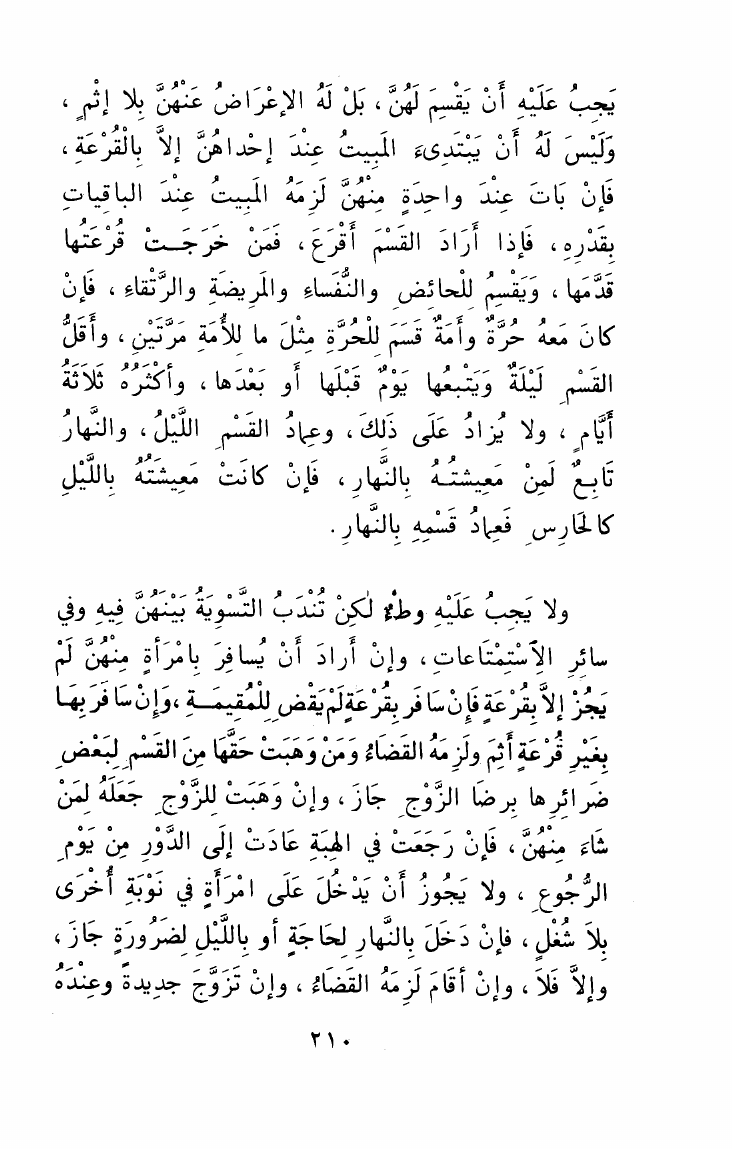 يَجِبُ عَلَيْهِ أَنْ يَقْسِمَ لَهُنَّ ، بَلْ لَهُ الإعْرَاضُ عَنْهُنَّ بِلا إثْمٍ ،
وَلَيْسَ لَهُ أَنْ يَبْتَدِىءَ المَبِيتُ عِنْدَ إحْداهُنَّ إلاَّ بِالْقُرْعَةِ ،
فَإنْ بَاتَ عِنْدَ واحِدَةٍ مِنْهُنَّ لَزِمَهُ المَبِيتُ عِنْدَ الباقِياتِ
بِقَدْرِهِ ، فَإذا أَرَادَ القَسْمَ أَقْرَعَ ، فَمَنْ خَرَجَتْ قُرْعَتُها
قَدَّمَها ، وَيَقْسِمُ لِلْحائِضِ والنُّفَساءِ والمَرِيضَةِ والرَّتْقاءِ ، فَإنْ
كانَ مَعهُ حُرَّةٌ وأَمَةٌ قَسَمَ لِلْحُرَّةِ مِثْلَ ما لِلأَمَةِ مَرَّتَيْنِ ، وأَقَلُّ
القَسْمِ لَيْلَةٌ وَيَتْبعُها يَوْمٌ قَبْلَها أو بَعْدَها ، وأكْثَرُهُ ثَلاَثَةُ
أيَّامٍ ، ولا يُزادُ عَلَى ذَلِكَ ، وعِمادُ القَسْمِ اللَّيْلُ ، والنَّهارُ
تَابِعٌ لَمِنْ مَعِيشتُهُ بِالنَّهارِ ، فَإنْ كانَتْ مَعِيشَتُهُ بِاللَّيْلِ
كالحَارِسِ فَعِمادُ قَسْمِهِ بِالنَّهارِ .
ولا يَجِبُ عَلَيْهِ وطءٌ لٰكِنْ تُنْدَبُ التَّسْوِيَةُ بَيْنَهُنَّ فِيهِ وفي
سائِرِ الِاسْتِمْتَاعاتِ ، وإنْ أرادَ أنْ يُسافِرَ بِامْرَأةٍ مِنْهُنَّ لَمْ
يَجُزْ إلاَّ بِقُرْعَةٍ فَإنْ سَافَر بِقُرْعَةٍ لَمْ يَقْضِ لِلْمُقِيمَةِ ، وَإنْ سَافَرَ بِهَا
بِغَيْرِ قُرْعَةٍ أثِمَ ولَزِمَهُ القَضَاءُ وَمَنْ وَهَبَتْ حَقَّهَا مِنَ القَسْمِ لِبَعْضِ
ضَرائِرِها بِرضَا الزَّوْجِ جَازَ ، وإنْ وَهَبَتْ لِلزَّوْجِ جَعَلَهُ لِمَنْ
شَاءَ مِنْهُنَّ ، فَإنْ رَجَعَتْ في الهِبَةِ عَادَتْ إلَى الدَّوْرِ مِنْ يَوْمِ
الرُّجُوعِ ، ولا يَجُوزُ أنْ يَدْخُلَ عَلَى امْرَأةٍ في نَوْبَةِ أُخْرَى
بِلاَ شُغْلٍ ، فإنْ دَخَلَ بِالنَّهارِ لِحَاجَةٍ أو بِاللَّيْلِ لِضَرُورَةٍ جَازَ ،
وإلاَّ فَلاَ ، وإنْ أقَامَ لَزِمَهُ القَضَاءُ ، وإنْ تَزَوَّجَ جديدةً وعِنْدَهُ
٢١٠